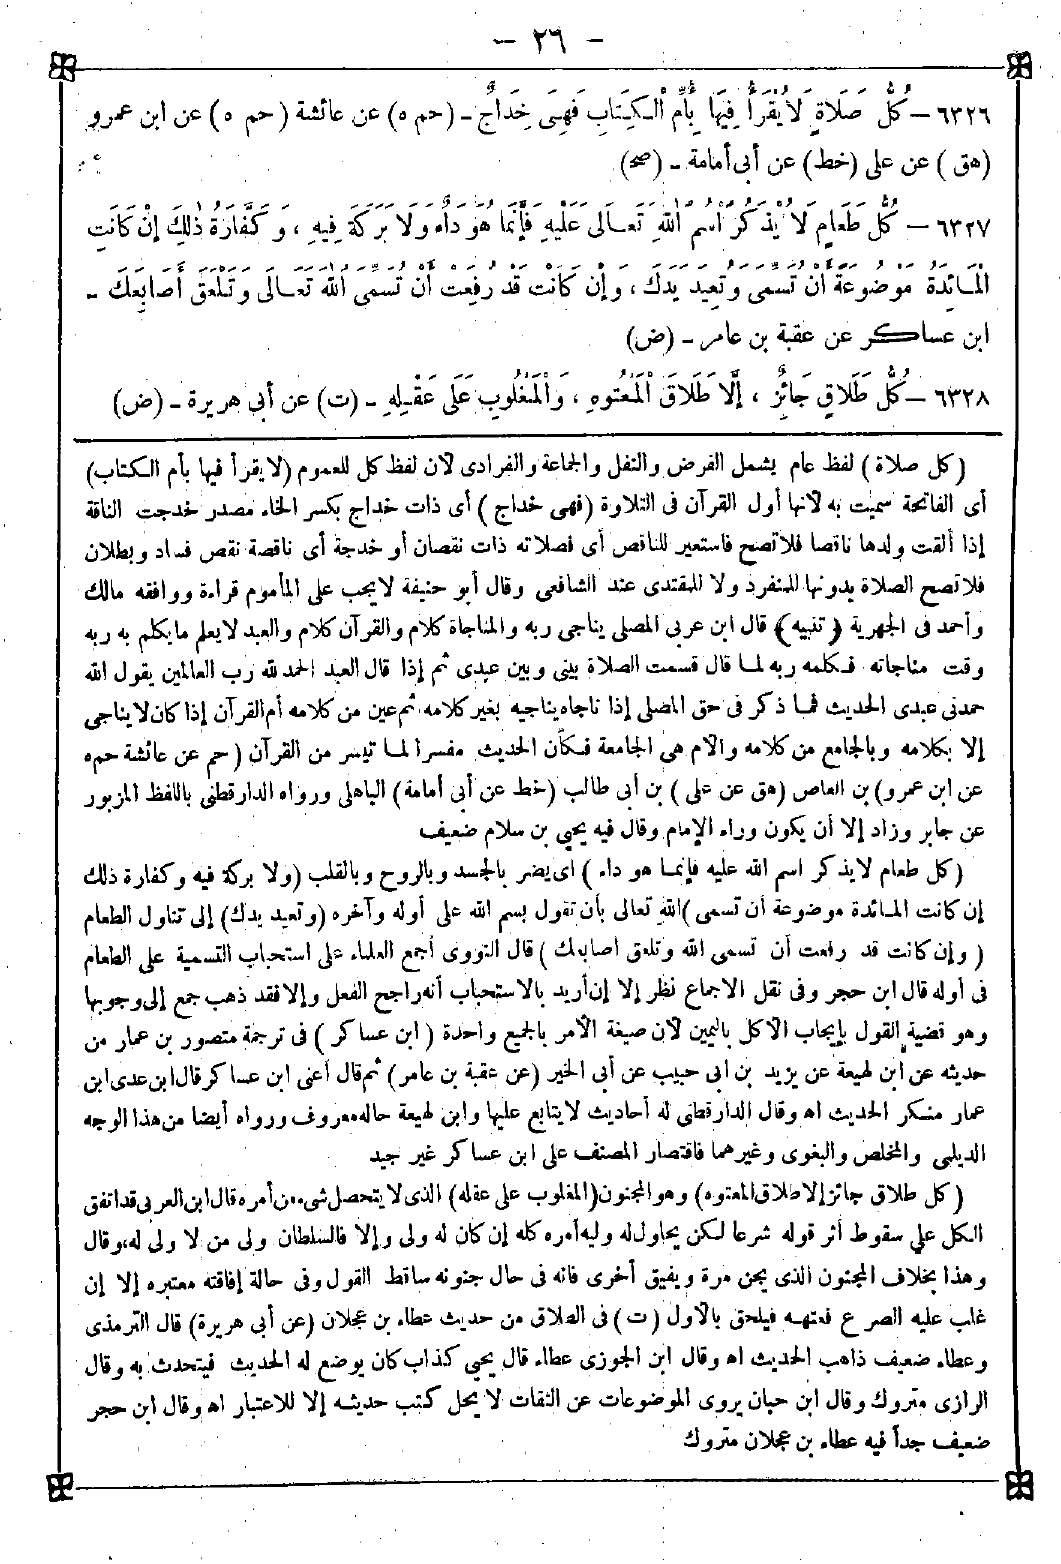 - ٢٦ -
٦٣٢٦ - كُلُّ صَلَاةٍ لَا يُقْرَأُ فِيهَا بِأُمِّ الْكِتَابِ فَهِيَ خِدَاجٌ - (حم ه) عن عائشة (حم ه) عن ابن عمرو
(هق) عن على (خط) عن أبى أمامة - (صح)
٦٣٢٧ - كُلُّ طَعَامٍ لَا يُذْكَرُ اسْمُ اللهِ تَعَالَى عَلَيْهِ فَإِنَّمَا هُوَ دَاءٌ وَلَا بَرَكَةَ فِيهِ ، وَكَفَّارَةُ ذٰلِكَ إِنْ كَانَتِ
الْمَائِدَةُ مَوْضُوعَةً أَنْ تُسَمِّىَ وَتُعِيدَ يَدَكَ ، وَإِنْ كَانَتْ قَدْ رُفِعَتْ أَنْ تُسَمِّىَ اللهَ تَعَالَى وَتَلْعَقَ أَصَابِعَكَ -
ابن عساكر عن عقبة بن عامر - (ض)
٦٣٢٨ - كُلُّ طَلَاقٍ جَائِزٌ ، إِلَّا طَلَاقَ الْمَعْتُوهِ ، وَالْمَغْلُوبِ عَلَى عَقْلِهِ - (ت) عن أبى هريرة - (ض)
(كل صلاة) لفظ عام يشمل الفرض والنفل والجماعة والفرادى لأن لفظ كل للعموم (لا يقرأ فيها بأم الكتاب)
أى الفاتحة سميت به لأنها أول القرآن فى التلاوة (فهى خداج) أى ذات خداج بكسر الخاء مصدر خدجت الناقة
إذا ألقت ولدها ناقصا فلا تصح فاستعير للناقص أى فصلاته ذات نقصان أو خدجة أى ناقصة نقص فساد وبطلان
فلا تصح الصلاة بدونها للمنفرد ولا للمقتدى عند الشافعى وقال أبو حنيفة لا يجب على المأموم قراءة ووافقه مالك
وأحمد فى الجهرية (تنبيه) قال ابن عربى المصلى يناجى ربه والمناجاة كلام والقرآن كلام والعبد لا يعلم ما يكلم به ربه
وقت مناجاته فكلمه ربه لما قال قسمت الصلاة بينى وبين عبدى ثم إذا قال العبد الحمد لله رب العالمين يقول الله
حمدنى عبدى الحديث فما ذكر فى حق المصلى إذا ناجاه يناجيه بغير كلامه ثم عين من كلامه أم القرآن إذا كان لا يناجى
إلا بكلامه وبالجامع من كلامه والأم هى الجامعة فكأن الحديث مفسرا لما تيسر من القرآن (حم عن عائشة حم ه
عن ابن عمرو) بن العاص (هق عن على) بن أبى طالب (خط عن أبى أمامة) الباهلى ورواه الدارقطنى باللفظ المزبور
عن جابر وزاد إلا أن يكون وراء الإمام وقال فيه يحيى بن سلام ضعيف
(كل طعام لا يذكر اسم الله عليه فإنما هو داء) أى يضر بالجسد وبالروح وبالقلب (ولا بركة فيه وكفارة ذلك
إن كانت المائدة موضوعة أن تسمى) الله تعالى بأن تقول بسم الله على أوله وآخره (وتعيد يدك) إلى تناول الطعام
(وإن كانت قد رفعت أن تسمى الله وتلعق أصابعك) قال النووى أجمع العلماء على استحباب التسمية على الطعام
فى أوله قال ابن حجر وفى نقل الاجماع نظر إلا إن أريد بالاستحباب أنه راجح الفعل وإلا فقد ذهب جمع إلى وجوبها
وهو قضية القول بإيجاب الأكل باليمين لأن صيغة الأمر بالجميع واحدة (ابن عساكر) فى ترجمة منصور بن عمار من
حديثه عن ابن لهيعة عن يزيد بن أبى حبيب عن أبى الخير (عن عقبة بن عامر) ثم قال أعنى ابن عساكر قال ابن عدى ابن
عمار منكر الحديث اه وقال الدارقطنى له أحاديث لا يتابع عليها وابن لهيعة حاله معروف ورواه أيضا من هذا الوجه
الديلمى والمخلص والبغوى وغيرهما فاقتصار المصنف على ابن عساكر غير جيد
(كل طلاق جائز إلا طلاق المعتوه) وهو المجنون (المغلوب على عقله) الذى لا يتحصل شىء من أمره قال ابن العربى قد اتفق
الكل على سقوط أثر قوله شرعا لكن يحاول له وليه أمره كله إن كان له ولى وإلا فالسلطان ولى من لا ولى له، وقال
وهذا بخلاف المجنون الذى يجن مرة ويفيق أخرى فانه فى حال جنونه ساقط القول وفى حالة إفاقته معتبره إلا إن
غلب عليه الصرع فعتهه فيلحق بالأول (ت) فى الطلاق من حديث عطاء بن عجلان (عن أبى هريرة) قال الترمذى
وعطاء ضعيف ذاهب الحديث اه وقال ابن الجوزى عطاء قال يحيى كذاب كان يوضع له الحديث فيتحدث به وقال
الرازى متروك وقال ابن حبان يروى الموضوعات عن الثقات لا يحل كتب حديثه إلا للاعتبار اه وقال ابن حجر
ضعيف جداً فيه عطاء بن عجلان متروك